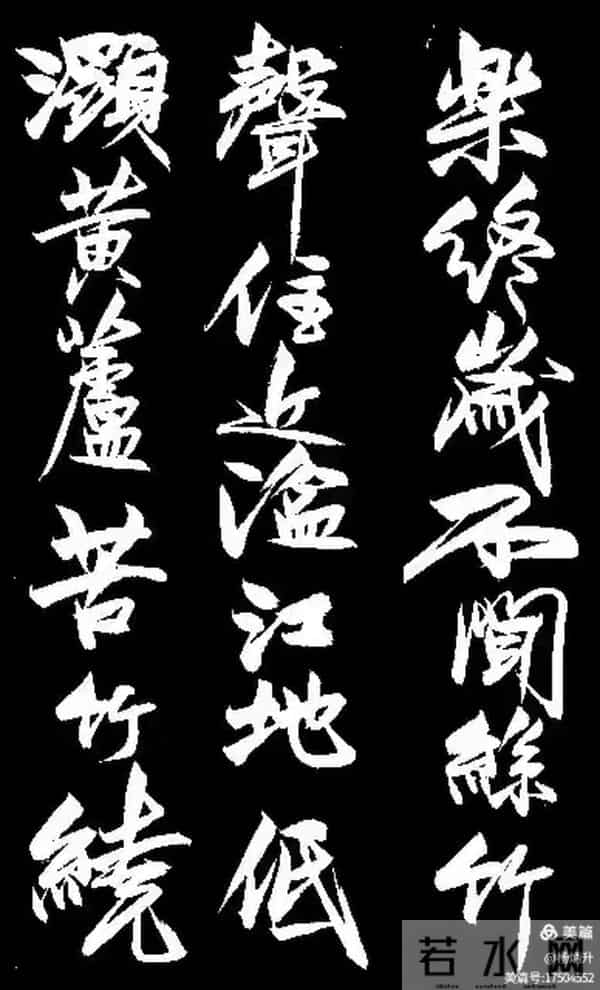 樂終歲不聞絲竹
聲住近湓江地低
濕黃蘆苦竹繞
美篇
若水网
美篇号:17504552